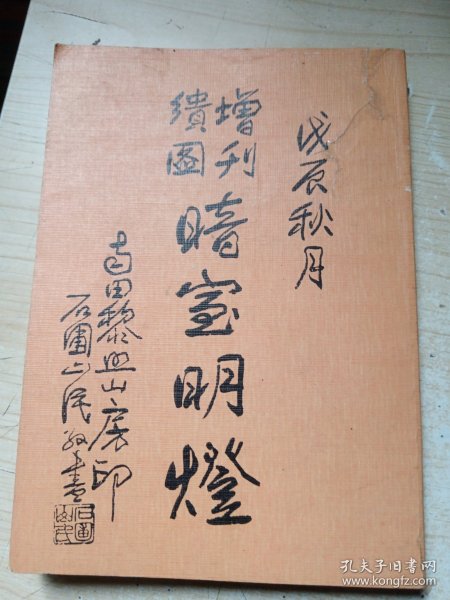 戊辰秋月
增刊
繢圖
暗室明燈
田黎照山房印
石圃山民敬書
孔夫子旧书网
www.kongfz.com